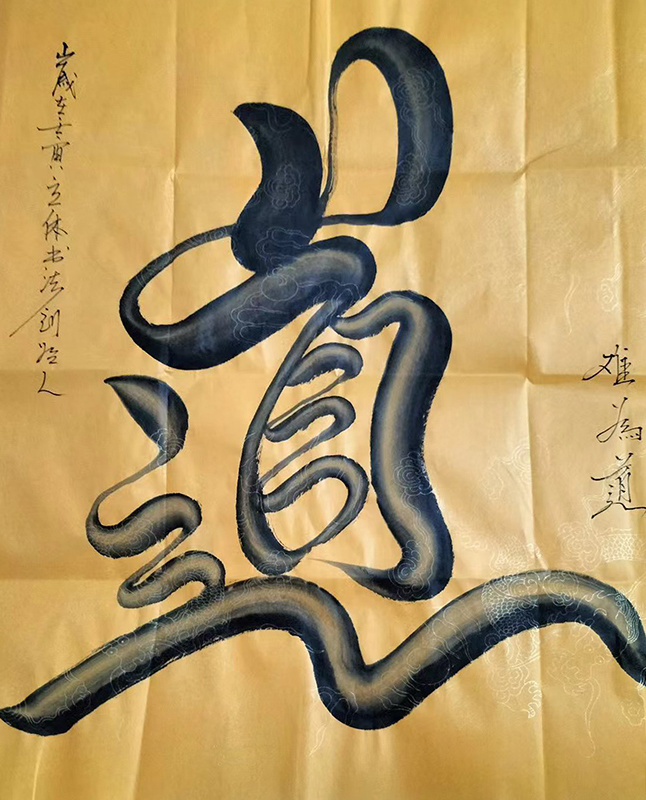 难為道
道
歲在壬寅立体书法创始人